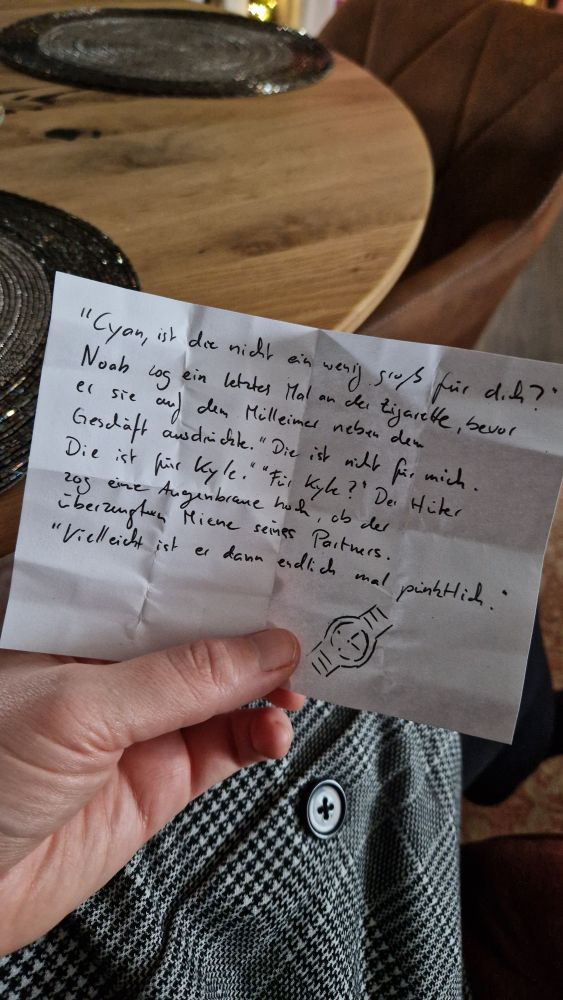 "Cyan, ist die nicht ein wenig groß für dich?"
Noah zog ein letztes Mal an der Zigarette, bevor
er sie auf dem Mülleimer neben dem
Geschäft ausdrückte. "Die ist nicht für mich.
Die ist für Kyle." "Für Kyle?" Der Hüter
zog eine Augenbraue hoch, ob der
überzeugten Miene seines Partners.
"Vielleicht ist er dann endlich mal pünktlich."